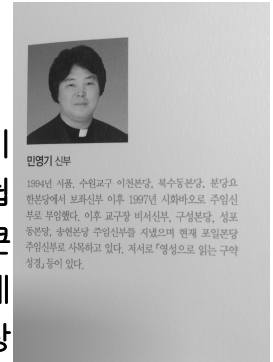 민영기 신부
1994년 서품. 수원교구 이천본당, 북수동본당, 분당요
한본당에서 보좌신부 이후 1997년 시화바오로 주임신
부로 부임했다. 이후 교구장 비서신부, 구성본당, 성포
동본당, 송현본당 주임신부를 지냈으며 현재 포일본당
주임신부로 사목하고 있다. 저서로 『영성으로 읽는 구약
성경』 등이 있다.